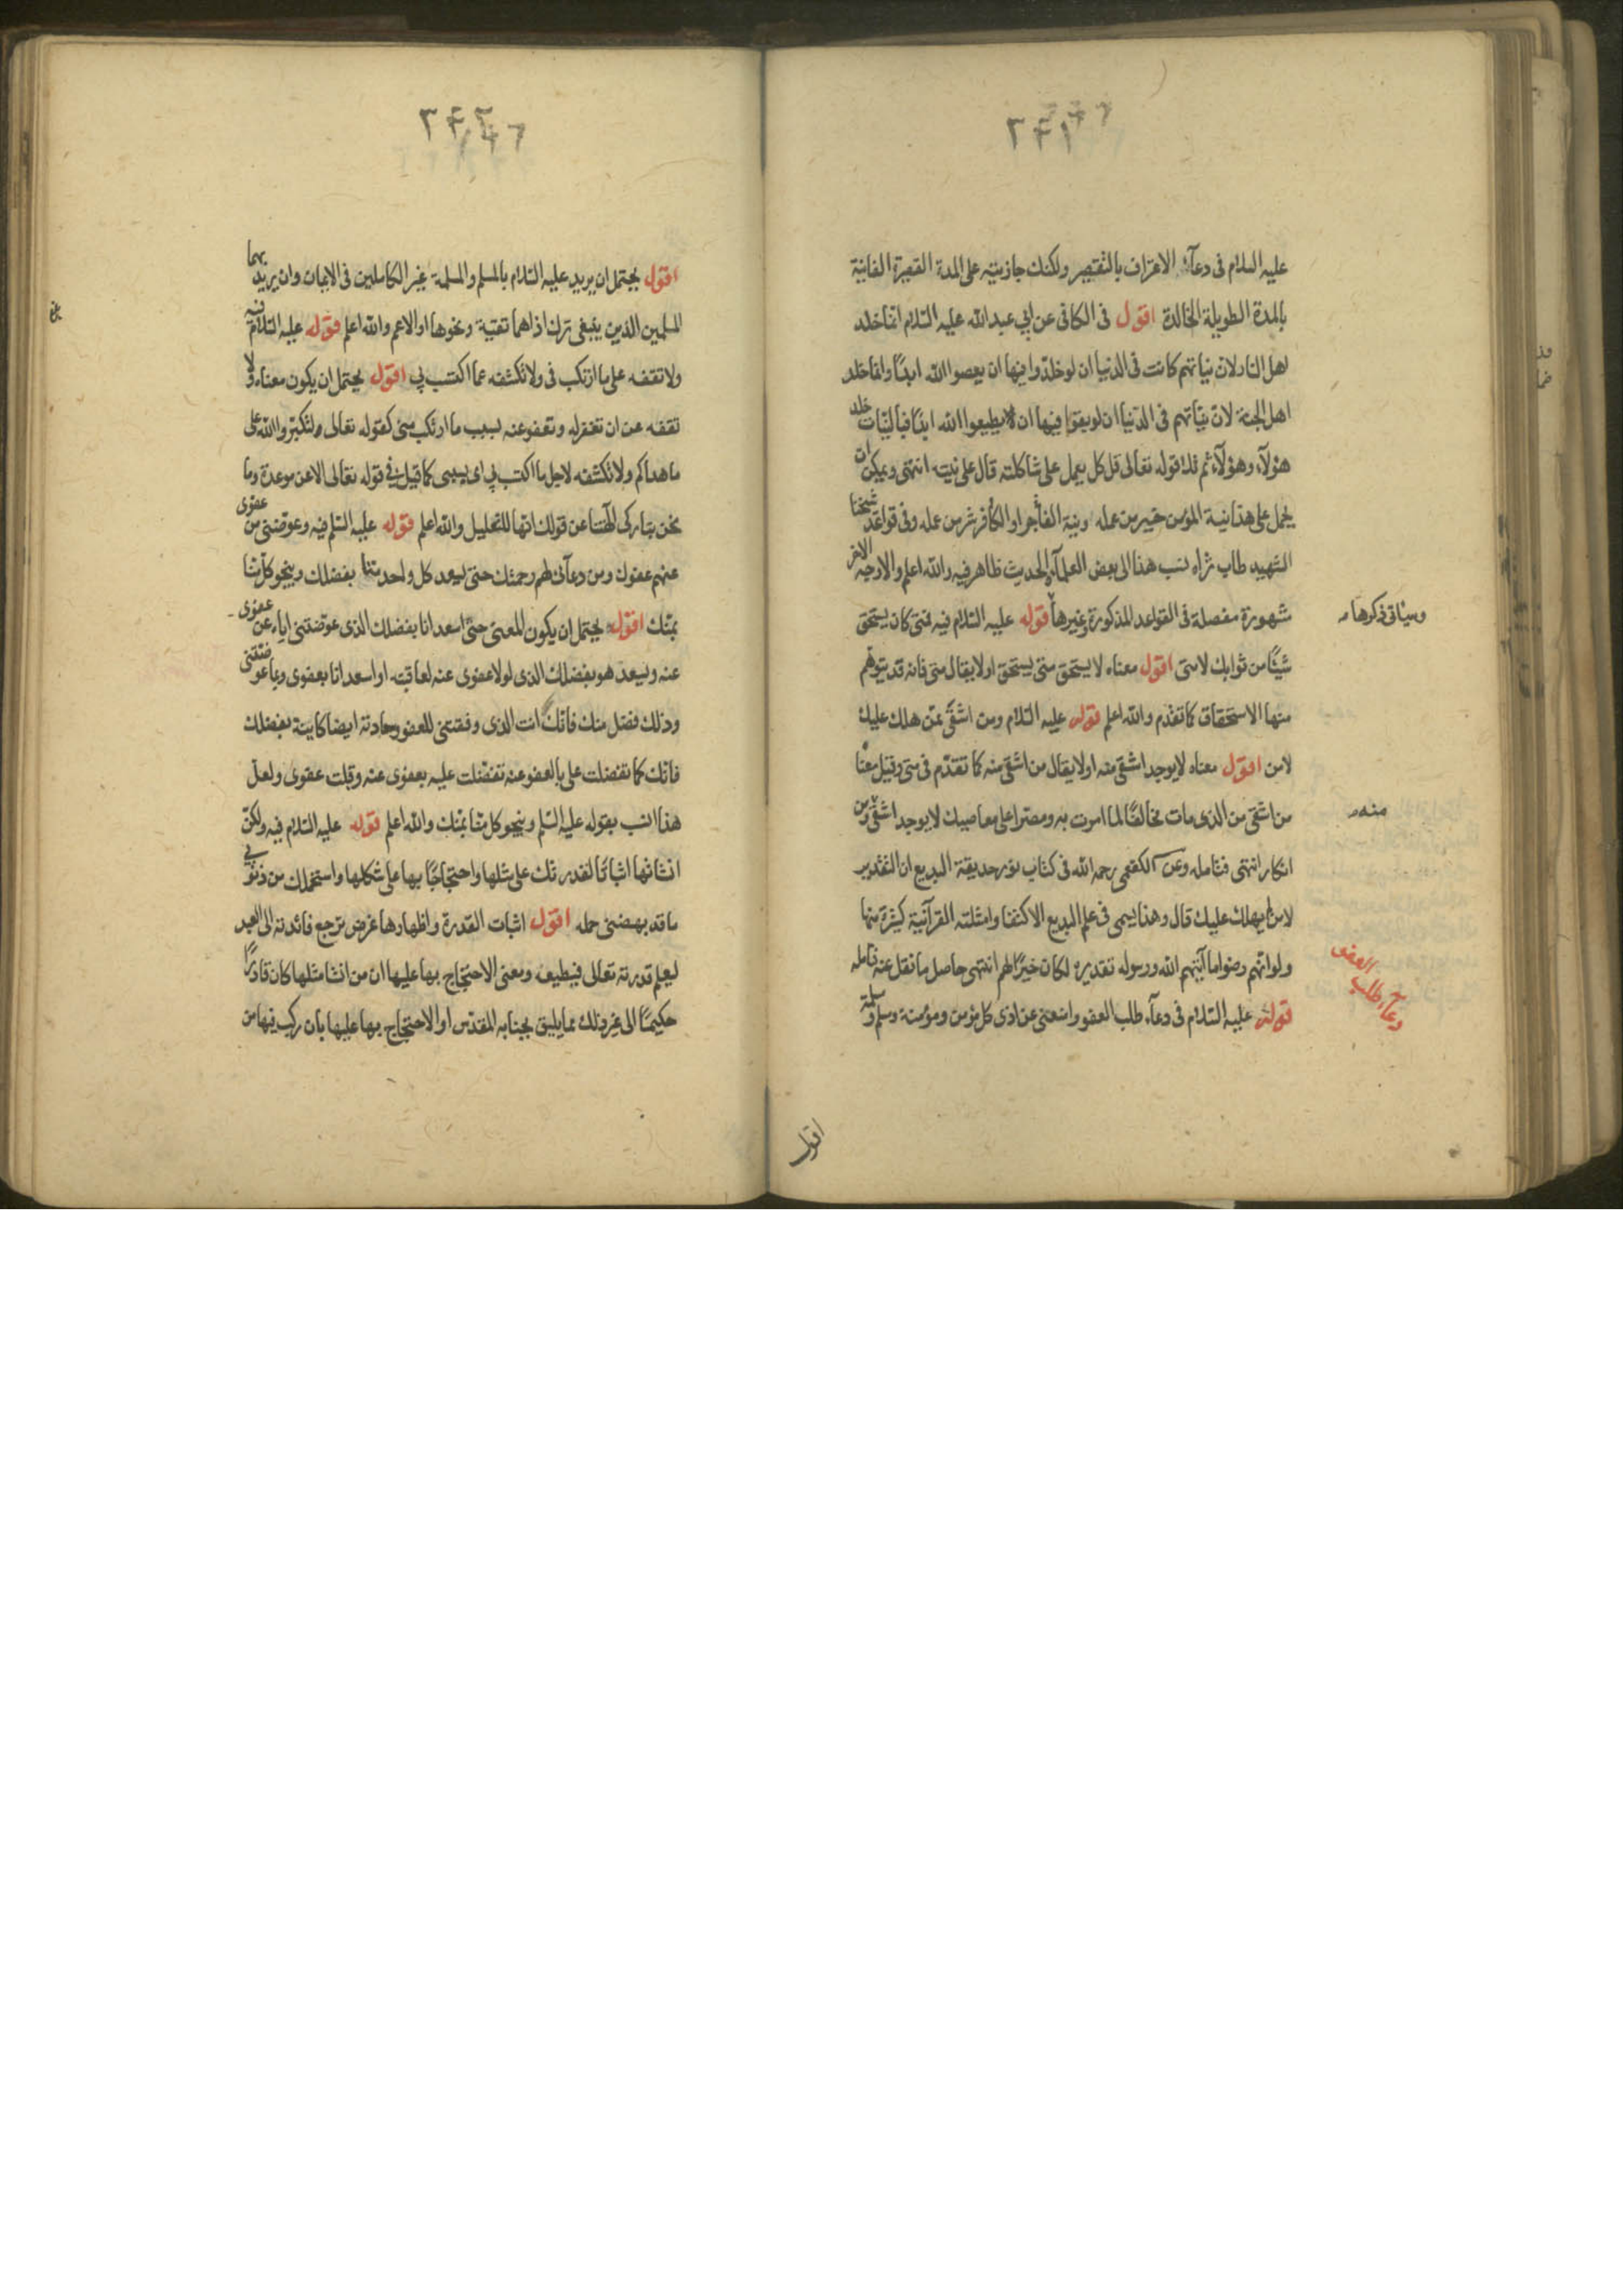 ۲۴۱
عليه السلام فى دعآئه الاعتراف بالتقصير ولكنك جازيته على المدة القصيرة الفانية
بالمدة الطويلة الخالدة اقول فى الكافى عن ابي عبد الله عليه السلام انما خلد
اهل النار لان نياتهم كانت فى الدنيا ان لو خلدوا فيها ان يعصوا الله ابدًا وانما خلد
اهل الجنة لان نيّاتهم فى الدّنيا ان لو بقوا فيها ان يطيعوا الله ابدًا فبالنيّات خلد
هؤلآء وهؤلآء ثم تلا قوله تعالى قل كل يعمل على شاكلته قال على نيته انتهى ويمكن ان
يحمل على هذا نية المؤمن خير من عمله ونية الفاجر او الكافر شر من عمله وفى قواعد شيخنا
الشهيد طاب ثراه نسب هذا الى بعض العلمآء والحديث ظاهر فيه والله اعلم والاوجه الاخر
شهورة مفصلة فى القواعد المذكورة وغيرها قوله عليه السلام فيه فمتى كان يستحق
وسياتى ذكرها منه
شيئًا من ثوابك لا متى اقول معناه لا يستحق متى يستحق او لا يقال متى فانه قد يتوهم
منها الاستحقاق كما تقدم والله اعلم قوله عليه السلام ومن اشقى ممّن هلك عليك
لا من اقول معناه لا يوجد اشقى منه او لا يقال من اشقى منه كما تقدّم فى متى وقيل معنا
من اشقى من الذى مات مخالفًا لما امرت به ومصرا على معاصيك لا يوجد اشقى ومن
منه
انكار انتهى فتامله وعن الكفعمى رحمه الله فى كتاب نور حديقة البديع ان التقدير
لا من لم يهلك عليك قال وهذا يسمى فى علم البديع الاكتفا وامثلته القرآنية كثيرة منها
ولو انّهم رضوا ما آتيهم الله ورسوله تقديره لكان خيرًا لهم انتهى حاصل ما نقل عنه تامله
دعآء طلب العفو
قوله عليه السلام فى دعآء طلب العفو وامنعنى عن اذى كل مؤمن ومؤمنة ومسلم ومسلمة
اقول
۲۴۲
اقول يحتمل ان يريد عليه السلام بالمسلم والمسلمة غير الكاملين فى الايمان وان يريد بهما
المسلمين الذين ينبغى ترك اذاهما تقية ونحوها او الاعم والله اعلم قوله عليه السلام فيه
ولا تقفه على ما ارتكب فى ولا تكشفه عما اكتسب بي اقول يحتمل ان يكون معناه ولا
تقفه عن ان تغفر له وتعفو عنه بسبب ما ارتكب منى كقوله تعالى ولتكبّروا الله على
ما هداكم ولا تكشفه لاجل ما اكتسب بي اى بسببى كما قيل فى قوله تعالى الا عن موعدة وما
نحن بتاركى آلهتنا عن قولك انها للتعليل والله اعلم قوله عليه السلم فيه وعوّضنى من عفوى
عنهم عفوك ومن دعآئى لهم رحمتك حتى يسعد كل واحد منا بفضلك وينجو كل منّا
بمنّك اقول يحتمل ان يكون المعنى حتى اسعد انا بفضلك الذى عوضتنى اياه عن عفوى
عنه ويسعد هو بفضلك الذى لولا عفوى عنه لعاقبته او اسعد انا بعفوى وبما عوضتنى
وذلك فضل منك فانك انت الذى وفقتنى للعفو وسعادته ايضا كاينة بفضلك
فانك كما تفضلت على بالعفو عنه تفضّلت عليه بعفوى عنه وقبلت عفوى ولعلّ
هذا انسب بقوله عليه السلم وينجو كل منّا بمنّك والله اعلم قوله عليه السلام فيه ولكن
انشاتها اثباتًا لقدرتك على مثلها واحتجاجًا بها على شكلها واستحملك من ذنوبى
ما قد بهضنى حمله اقول اثبات القدرة واظهارها غرض ترجع فائدته الى العبد
ليعلم قدرته تعالى فيطيعه ومعنى الاحتجاج بها عليها ان من انشا مثلها كان قادرًا
حكيمًا الى غير ذلك مما يليق بجنابه المقدّس او الاحتجاج بها عليها بان ركب فيها من